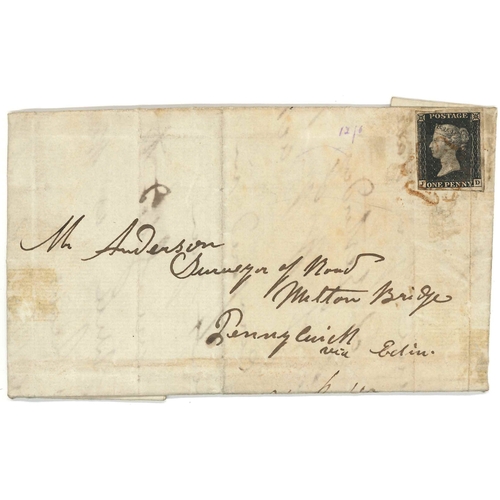 12/6
POSTAGE
ONE PENNY
D
Mr Anderson
Surveyor of Road
Milton Bridge
Pennycuick
via Edin.